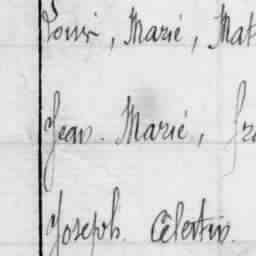 Louis, Marie, Mat
Jean-Marie, fra
Joseph Célestin.